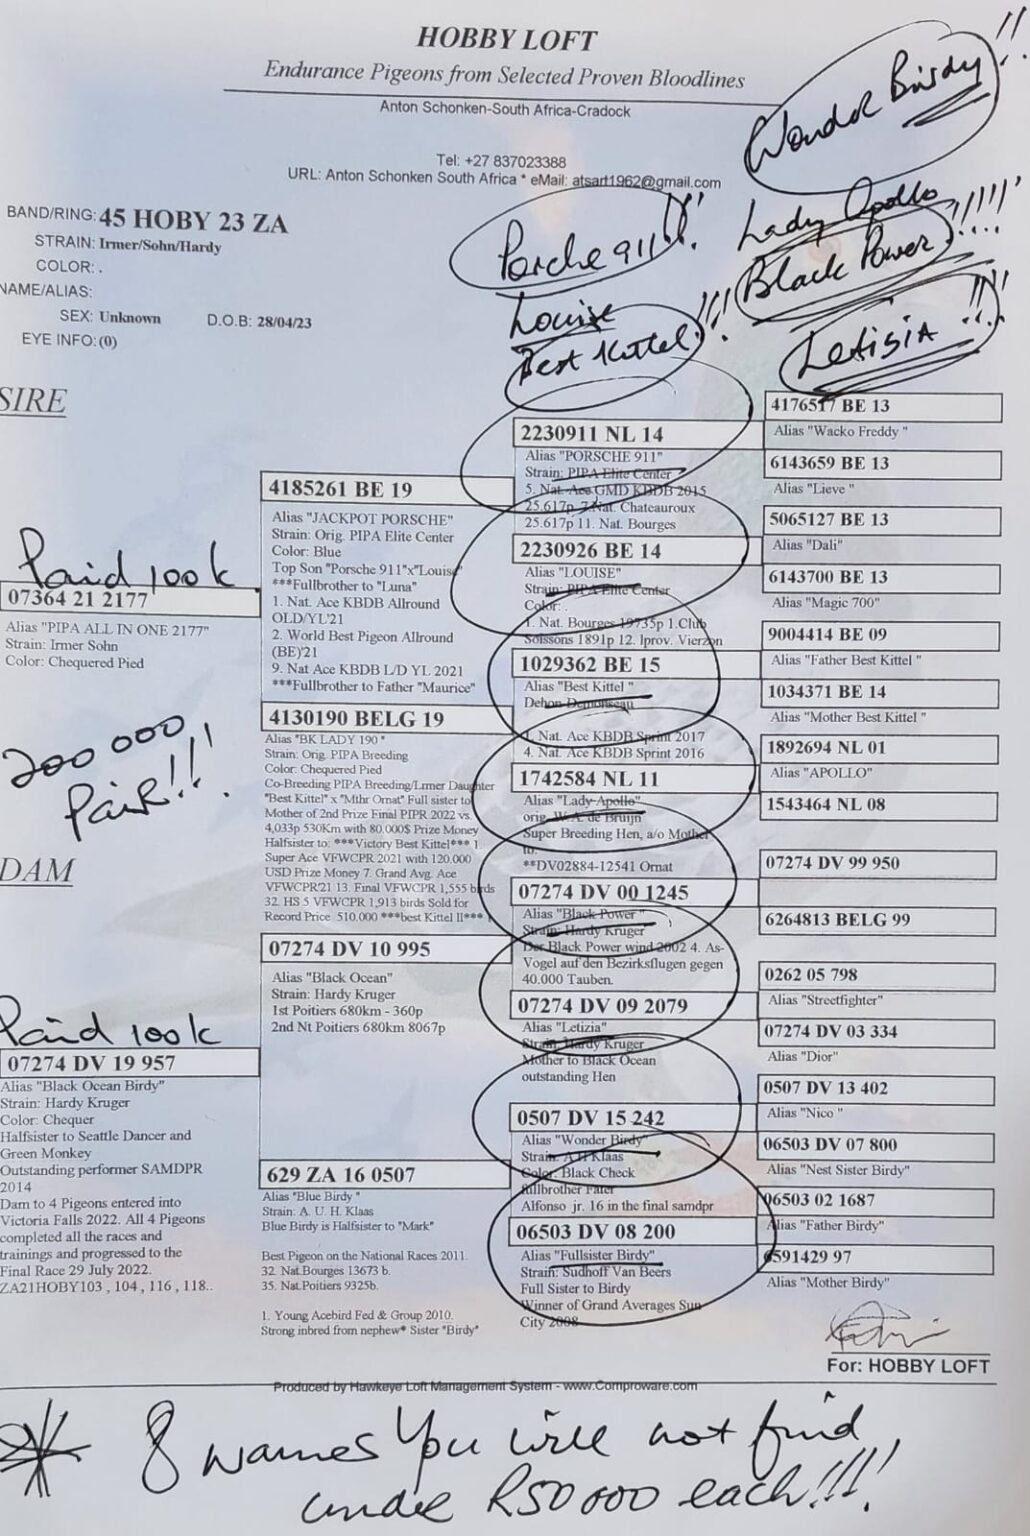 HOBBY LOFT
Endurance Pigeons from Selected Proven Bloodlines
Anton Schonken-South Africa-Cradock
Tel: +27 837023388
URL: Anton Schonken South Africa * eMail: atsart1962@gmail.com
Wonder Birdy!!
BAND/RING: 45 HOBY 23 ZA
STRAIN: Irmer/Sohn/Hardy
COLOR: .
NAME/ALIAS:
SEX: Unknown D.O.B: 28/04/23
EYE INFO: (0)
Porche 911!!!
Louise
Best Kittel!!!
Lady Apollo
Black Power!!!!!
Letisia!!!
SIRE
Paid 100k
07364 21 2177
Alias "PIPA ALL IN ONE 2177"
Strain: Irmer Sohn
Color: Chequered Pied
200 000
Pair!!!
DAM
Paid 100k
07274 DV 19 957
Alias "Black Ocean Birdy"
Strain: Hardy Kruger
Color: Chequer
Halfsister to Seattle Dancer and
Green Monkey
Outstanding performer SAMDPR
2014
Dam to 4 Pigeons entered into
Victoria Falls 2022. All 4 Pigeons
completed all the races and
trainings and progressed to the
Final Race 29 July 2022.
ZA21HOBY103 , 104 , 116 , 118..
4185261 BE 19
Alias "JACKPOT PORSCHE"
Strain: Orig. PIPA Elite Center
Color: Blue
Top Son "Porsche 911"x"Louise"
***Fullbrother to "Luna"
1. Nat. Ace KBDB Allround
OLD/YL'21
2. World Best Pigeon Allround
(BE)'21
9. Nat Ace KBDB L/D YL 2021
***Fullbrother to Father "Maurice"
4130190 BELG 19
Alias "BK LADY 190 "
Strain: Orig. PIPA Breeding
Color: Chequered Pied
Co-Breeding PIPA Breeding/Lrmer Daughter
"Best Kittel" x "Mthr Ornat" Full sister to
Mother of 2nd Prize Final PIPR 2022 vs.
4,033p 530Km with 80.000$ Prize Money
Halfsister to: ***Victory Best Kittel*** 1
Super Ace VFWCPR 2021 with 120.000
USD Prize Money 7. Grand Avg. Ace
VFWCPR'21 13. Final VFWCPR 1,555 birds
32. HS 5 VFWCPR 1,913 birds Sold for
Record Price 510.000 ***best Kittel II***
07274 DV 10 995
Alias "Black Ocean"
Strain: Hardy Kruger
1st Poitiers 680km - 360p
2nd Nt Poitiers 680km 8067p
629 ZA 16 0507
Alias "Blue Birdy "
Strain: A. U. H. Klaas
Blue Birdy is Halfsister to "Mark"
Best Pigeon on the National Races 2011.
32. Nat.Bourges 13673 b.
35. Nat.Poitiers 9325b.
1. Young Acebird Fed & Group 2010.
Strong inbred from nephew* Sister "Birdy"
2230911 NL 14
Alias "PORSCHE 911"
Strain: PIPA Elite Center
5. Nat. Ace GMD KBDB 2015
25.617p. 7.Nat. Chateauroux
25.617p 11. Nat. Bourges
2230926 BE 14
Alias "LOUISE"
Strain: PIPA Elite Center
Color: .
1. Nat. Bourges 19735p 1.Club
Soissons 1891p 12. Iprov. Vierzon
1029362 BE 15
Alias "Best Kittel "
Dehon-Demonseau
1. Nat. Ace KBDB Sprint 2017
4. Nat. Ace KBDB Sprint 2016
1742584 NL 11
Alias "Lady-Apollo"
orig. W.A. de Bruijn
Super Breeding Hen, a/o Mother
to:
**DV02884-12541 Ornat
07274 DV 00 1245
Alias "Black Power "
Strain: Hardy Kruger
Der Black Power wind 2002 4. As-
Vogel auf den Bezirksflugen gegen
40.000 Tauben.
07274 DV 09 2079
Alias "Letizia"
Strain: Hardy Kruger
Mother to Black Ocean
outstanding Hen
0507 DV 15 242
Alias "Wonder Birdy"
Strain: A H Klaas
Color: Black Check
fullbrother Fater
Alfonso jr. 16 in the final samdpr
06503 DV 08 200
Alias "Fullsister Birdy"
Strain: Sudhoff Van Beers
Full Sister to Birdy
Winner of Grand Averages Sun
City 2008
4176517 BE 13
Alias "Wacko Freddy "
6143659 BE 13
Alias "Lieve "
5065127 BE 13
Alias "Dali"
6143700 BE 13
Alias "Magic 700"
9004414 BE 09
Alias "Father Best Kittel "
1034371 BE 14
Alias "Mother Best Kittel "
1892694 NL 01
Alias "APOLLO"
1543464 NL 08
07274 DV 99 950
6264813 BELG 99
0262 05 798
Alias "Streetfighter"
07274 DV 03 334
Alias "Dior"
0507 DV 13 402
Alias "Nico "
06503 DV 07 800
Alias "Nest Sister Birdy"
06503 02 1687
Alias "Father Birdy"
6591429 97
Alias "Mother Birdy"
For: HOBBY LOFT
Produced by Hawkeye Loft Management System - www.Comproware.com
8 names You will not find
under R50 000 each!!!!